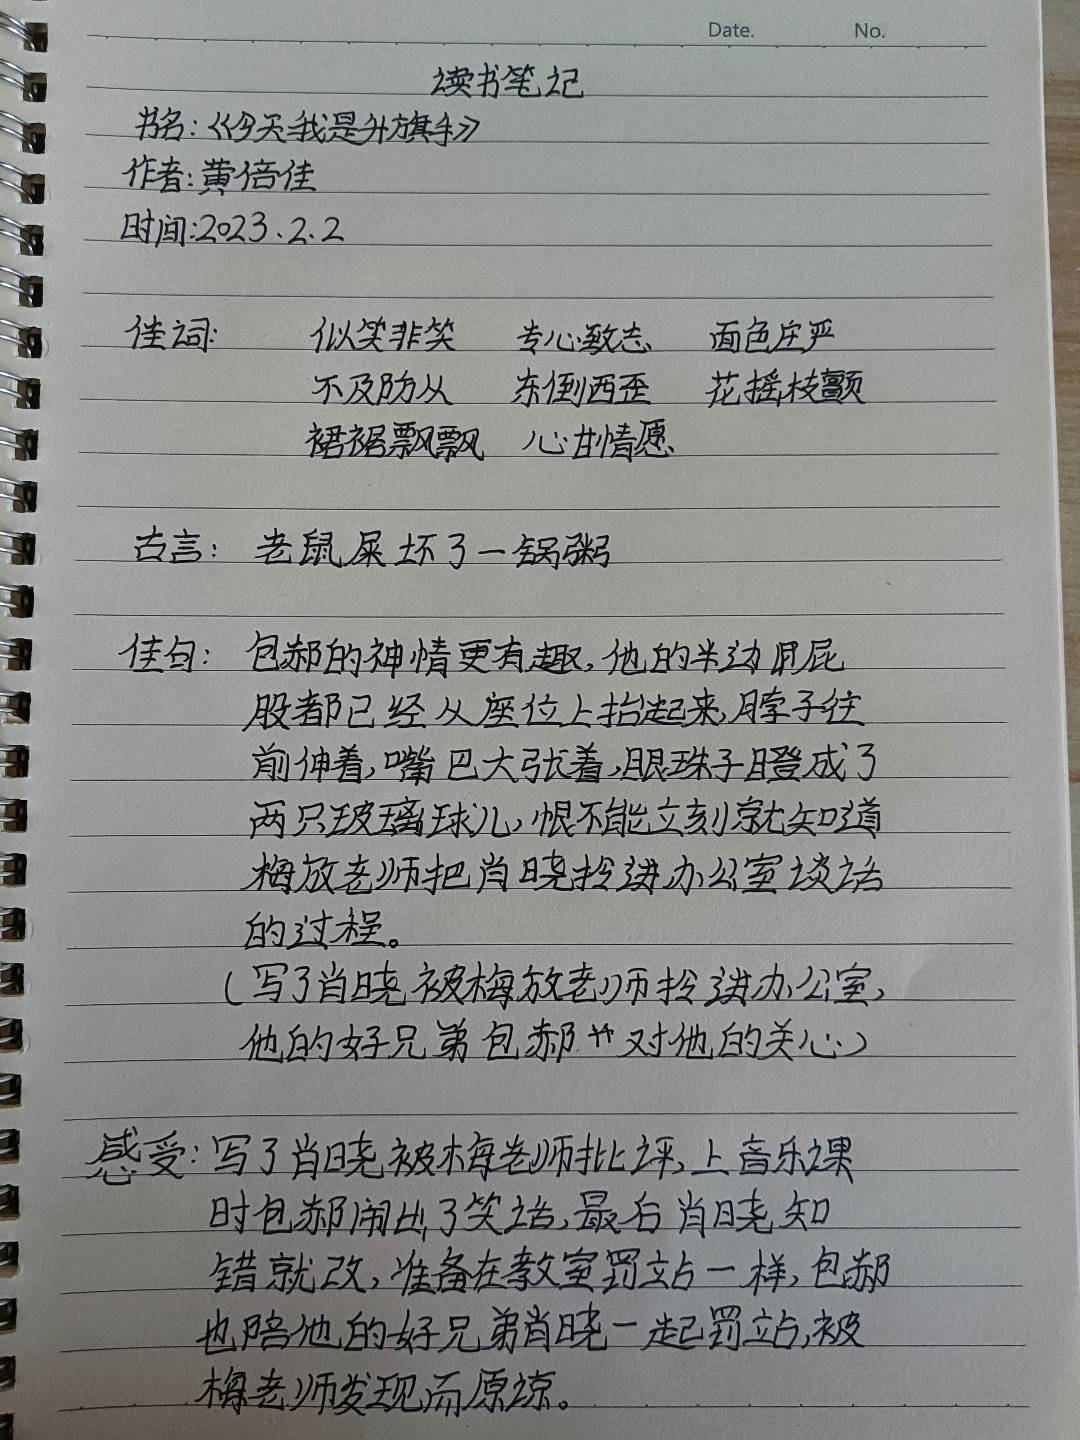 Date. No.
读书笔记
书名:《今天我是升旗手》
作者:黄倍佳
时间:2023.2.2
佳词: 似笑非笑 专心致志 面色庄严
不及防从 东倒西歪 花摇枝颤
裙裾飘飘 心甘情愿
古言: 老鼠屎坏了一锅粥
佳句: 包郝的神情更有趣,他的半边屁
股都已经从座位上抬起来,脖子往
前伸着,嘴巴大张着,眼珠子瞪成了
两只玻璃球儿,恨不能立刻就知道
梅放老师把肖晓拎进办公室谈话
的过程。
(写了肖晓被梅放老师拎进办公室,
他的好兄弟包郝对他的关心)
感受:写了肖晓被梅老师批评,上音乐课
时包郝闹出了笑话,最后肖晓知
错就改,准备在教室罚站一样,包郝
也陪他的好兄弟肖晓一起罚站,被
梅老师发现而原谅。